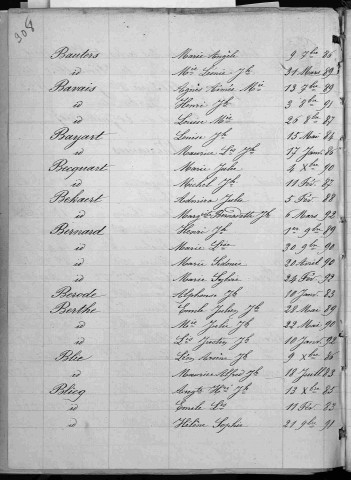 308
Bauters Marie Angèle 9 7bre 86
id Mie Léonie Jh 31 Mars 89
Bavais Agnès Aimée Mie 13 7bre 89
id Henri Jh 3 8bre 91
id Louise Mie 26 8bre 87
Bayart Louise Jh 15 Mai 84
id Maurice Ls Jh 17 Janv 86
Becquart Marie Julie 4 Xbre 90
id Michel Jh 11 Fév. 87
Bekaert Julie 5 Fév 88
id Margte Bernadette Jh 6 Mars 92
Bernard Henri Jh 1er 9bre 89
id Marie 30 9bre 90
id Marie Sidonie 20 Avril 90
id Marie 24 Fév 92
Berode Alphonse Jh 10 Janv 83
Berthe Emile Julien Jh 28 Mai 89
id Mie Julie Jh 22 Mai 90
id Ls Jh 10 Janv 92
Blée Léon Jh 9 Xbre 86
id Maurice Alfred Jh 18 Juill 83
Blicq Augte Jh 13 Xbre 85
id Emile Ls 11 Fév 83
id Hélène Sophie 21 9bre 91